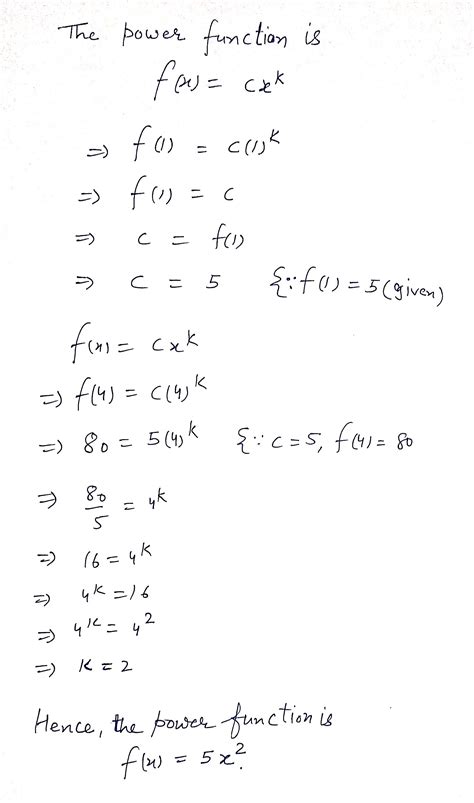 The power function is
f(x) = cx^k
⇒ f(1) = c(1)^k
⇒ f(1) = c
⇒ c = f(1)
⇒ c = 5 {∵ f(1) = 5 (given)
f(x) = cx^k
⇒ f(4) = c(4)^k
⇒ 80 = 5(4)^k {∵ c = 5, f(4) = 80
⇒ 80/5 = 4^k
⇒ 16 = 4^k
⇒ 4^k = 16
⇒ 4^k = 4^2
⇒ k = 2
Hence, the power function is
f(x) = 5x^2.